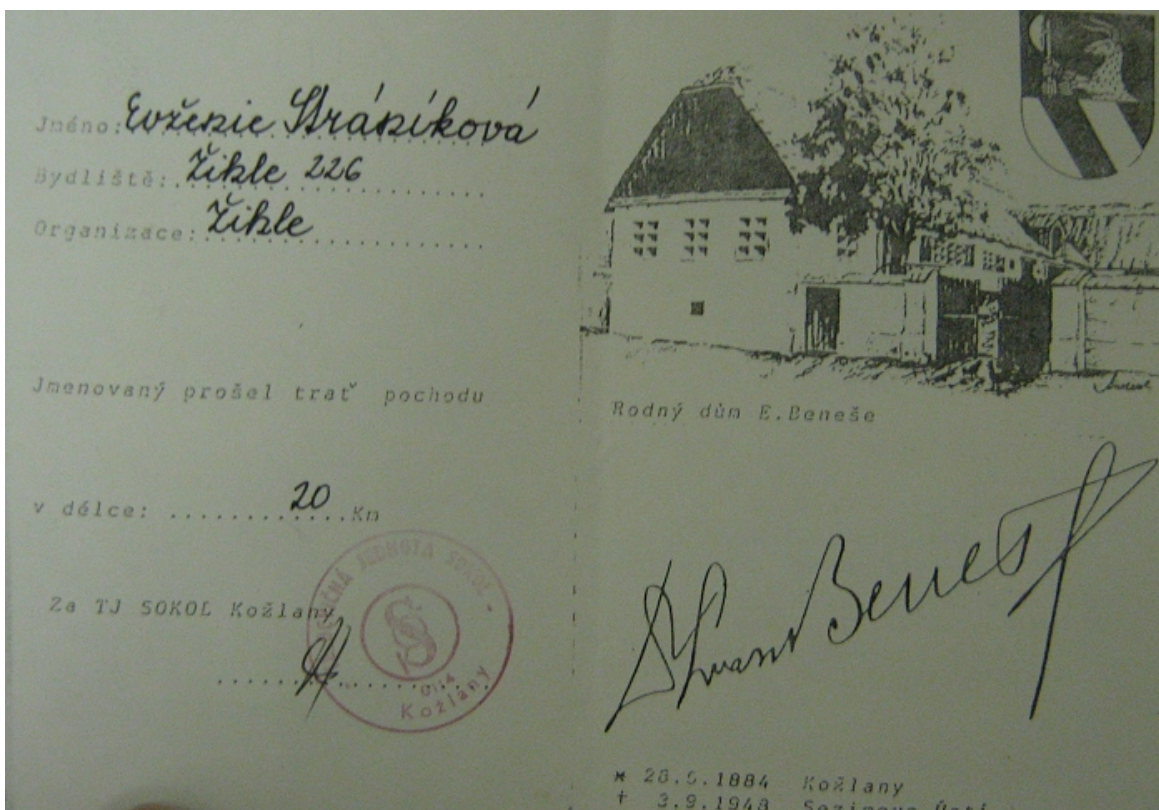 Jméno: Evženie Stráníková
Bydliště: Žihle 226
Organizace: Žihle
Jmenovaný prošel trať pochodu
v délce: 20 Km
Za TJ SOKOL Kožlany
JEDNOTA SOKOL -
Kožlany
Rodný dům E.Beneše
Beneš
* 28.5.1884 Kožlany
† 3.9.1948 Sezimovo Ústí